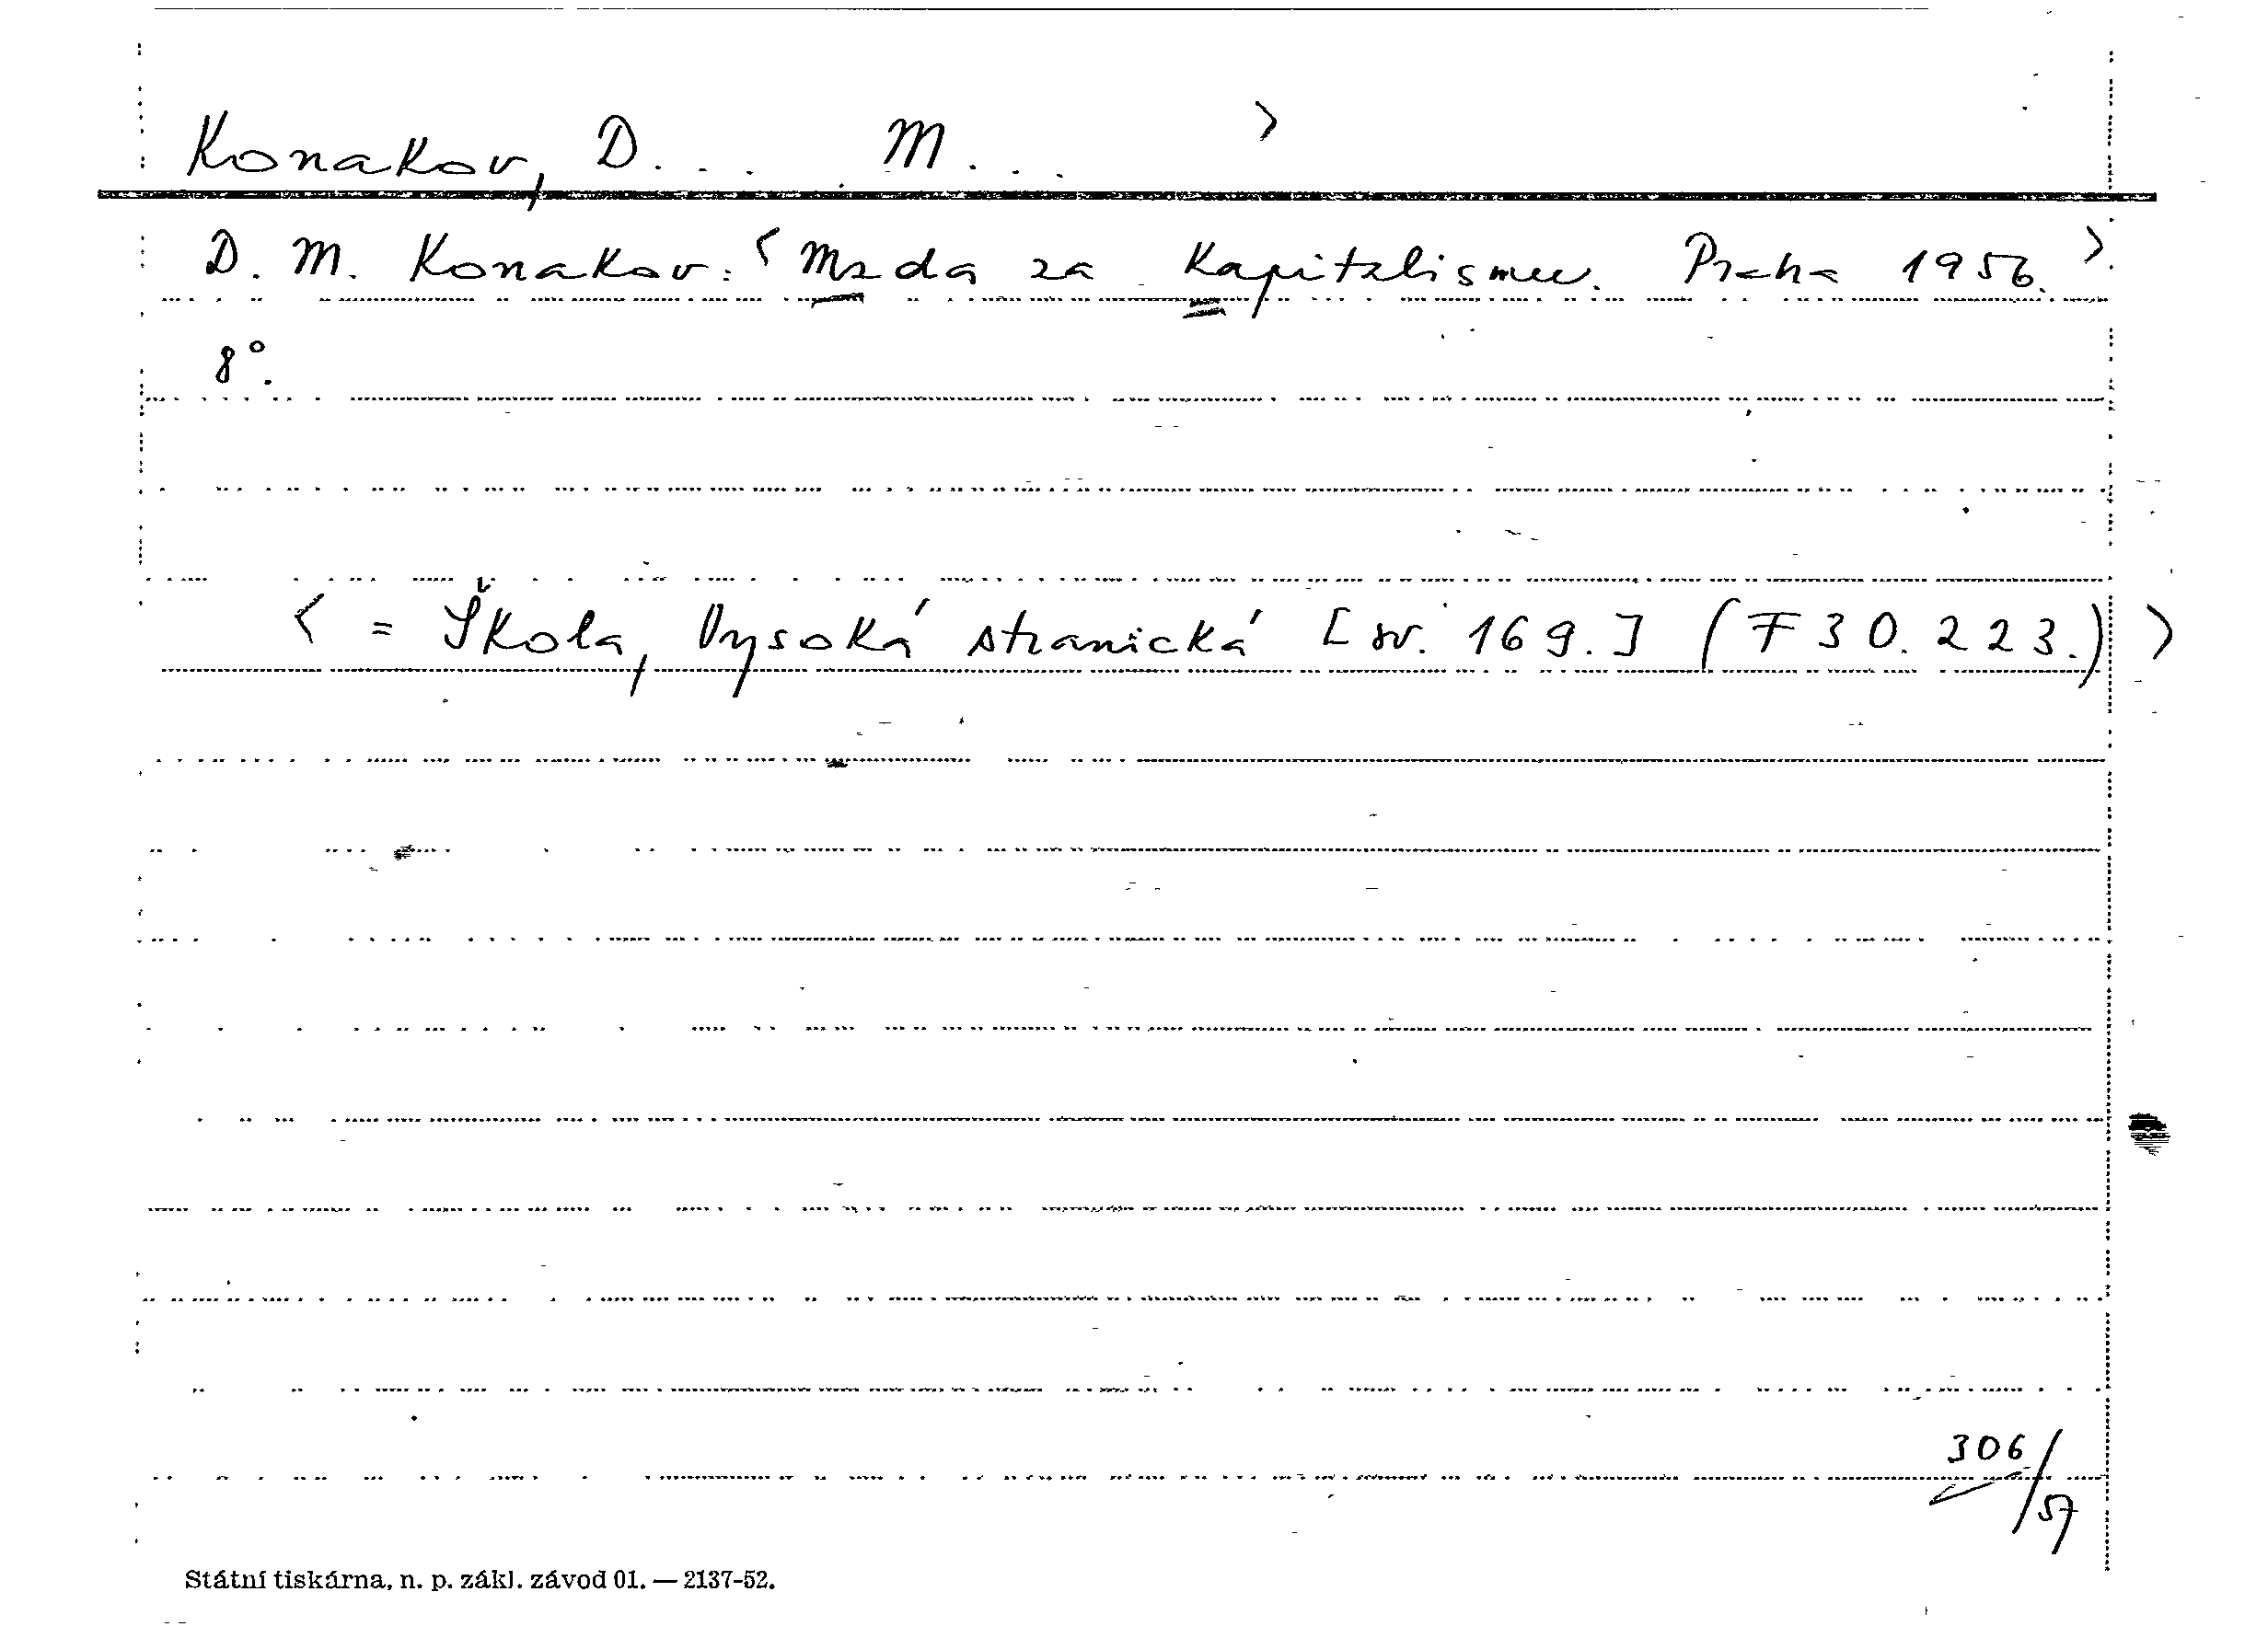 Konakov, D... M... >
D. M. Konakov: < Mzda za kapitalismu. Praha 1956. >
8°.
< = Škola, Vysoká stranická [sv. 169.] (F 30.223.) >
306/57
Státní tiskárna, n. p. zákl. závod 01. — 2137-52.